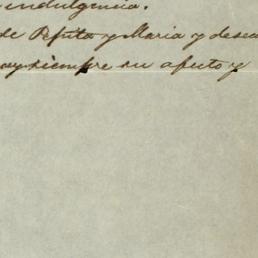 indulgencia.
de Pepita y Maria y desea
siempre su afecto y